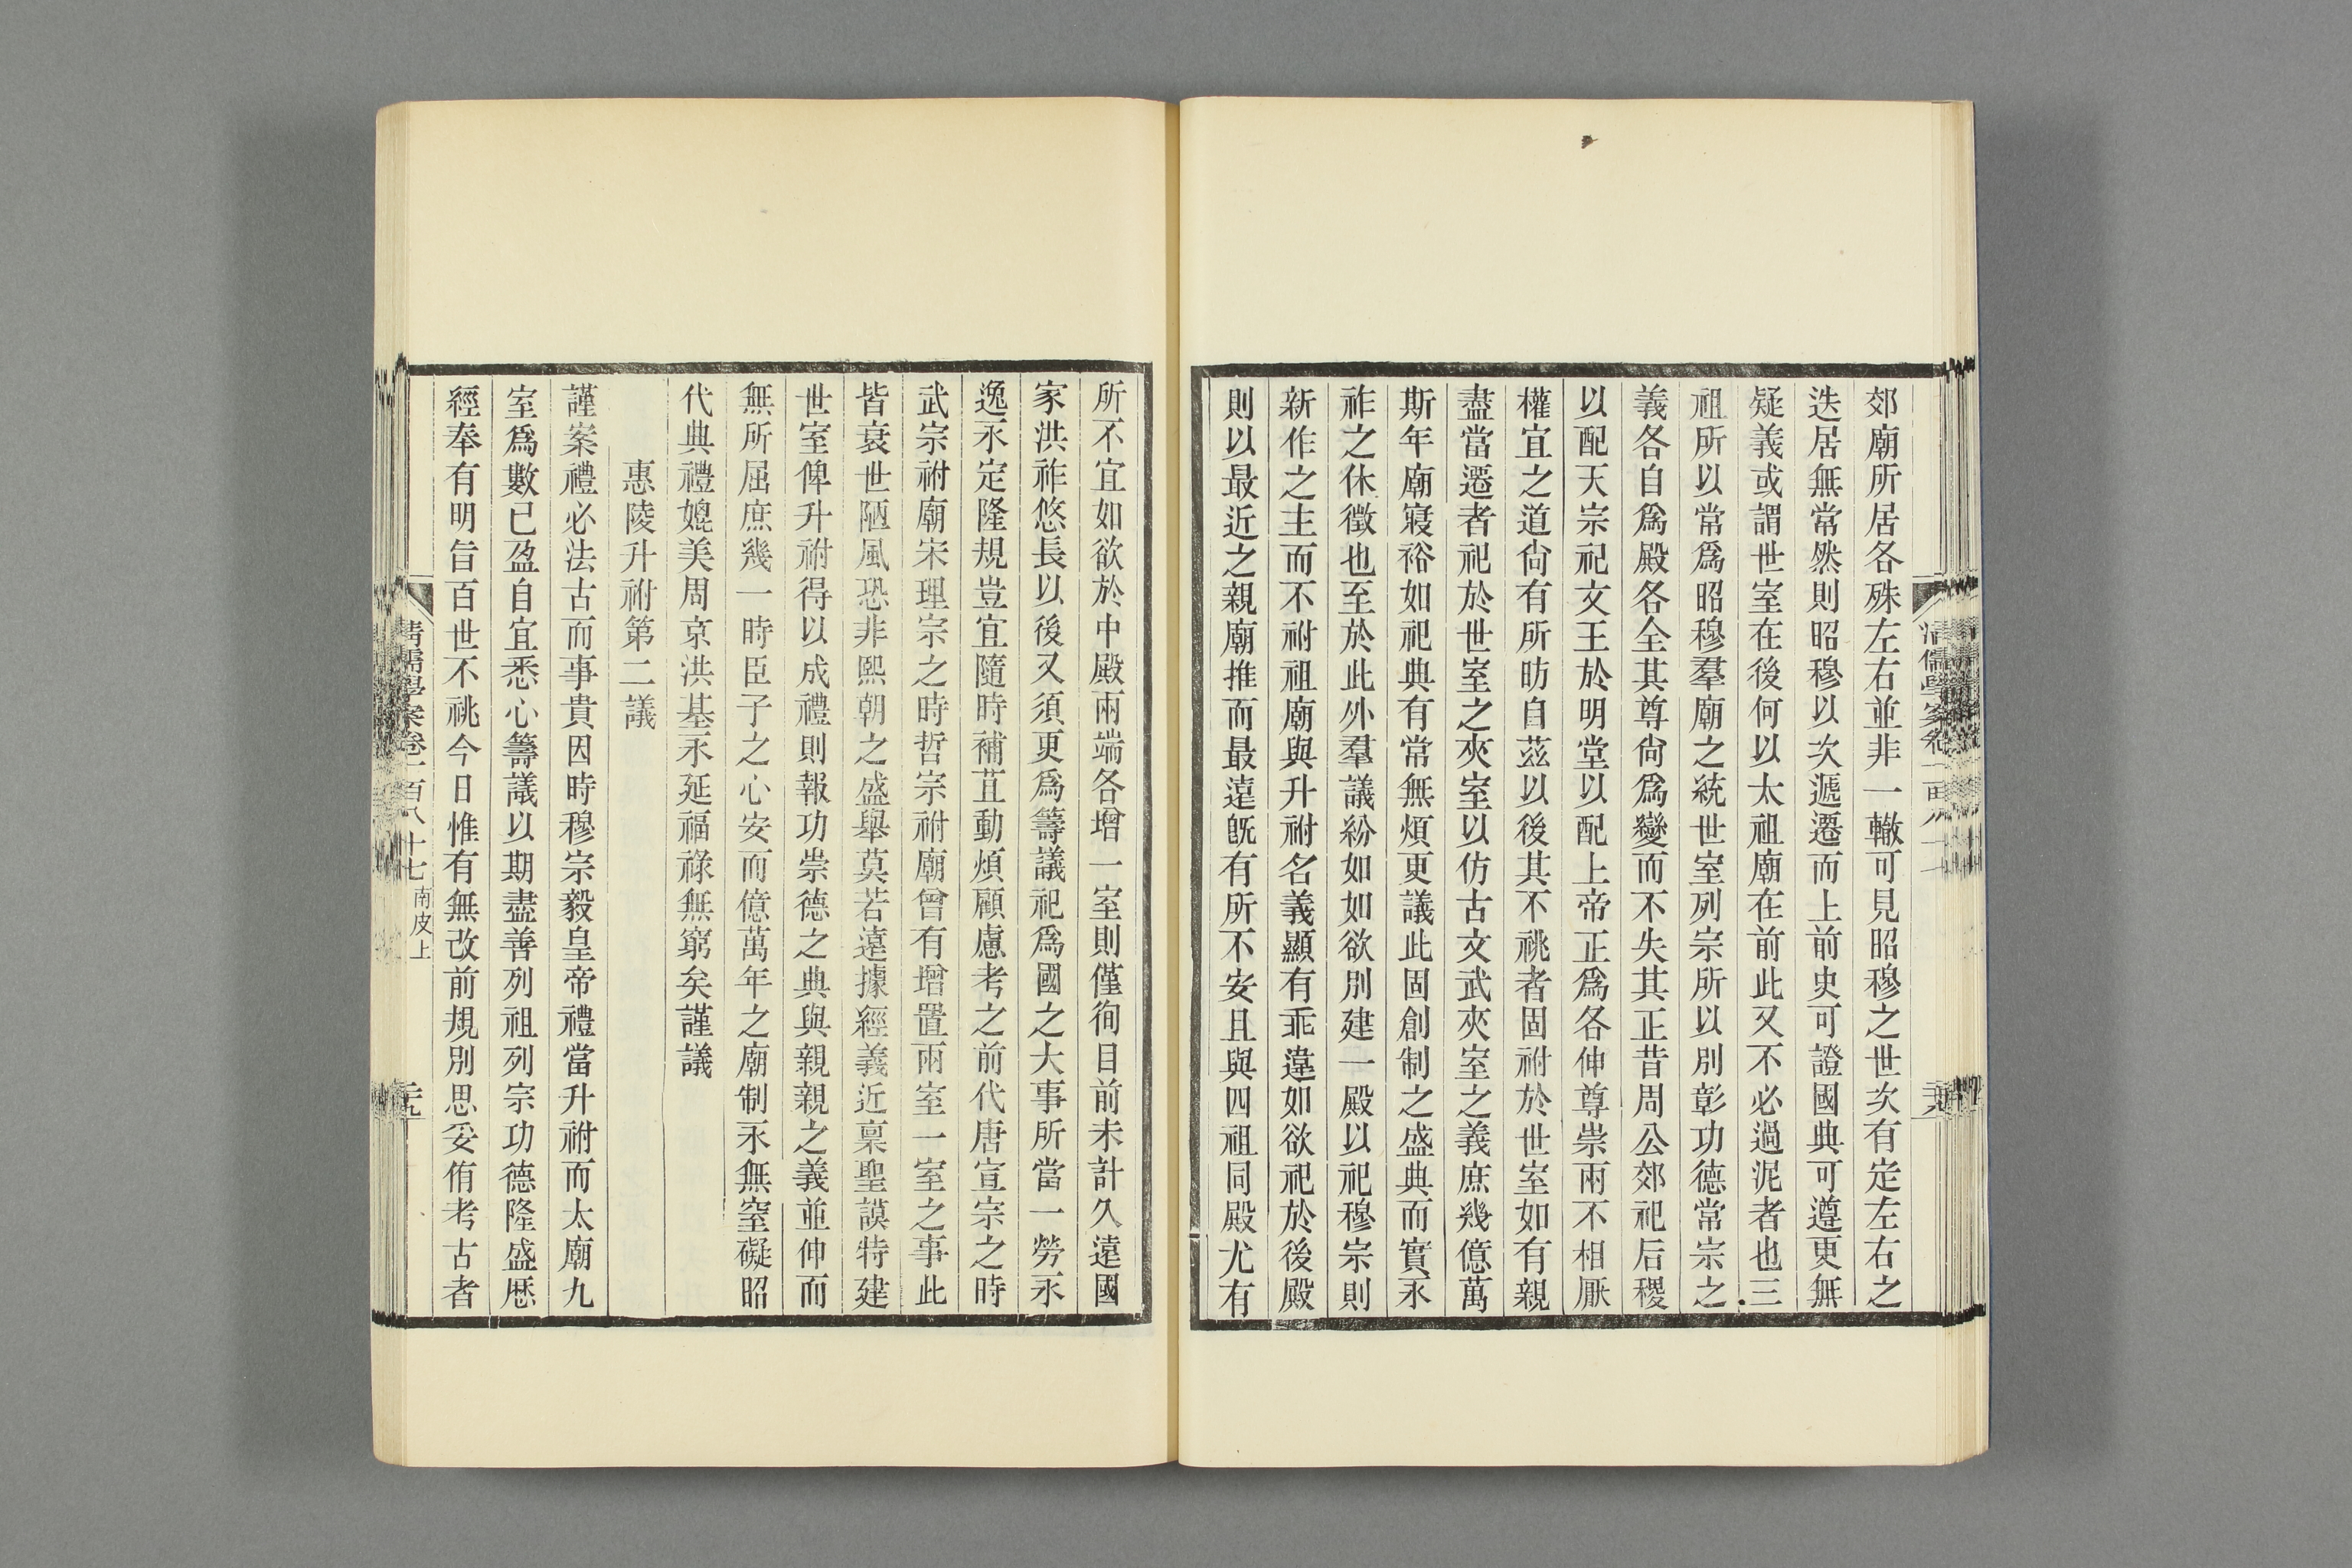 郊廟所居各殊左右並非一轍可見昭穆之世次有定左右之
迭居無常然則昭穆以次遞遷而上前史可證國典可遵更無
疑義或謂世室在後何以太祖廟在前此又不必過泥者也三
祖所以常爲昭穆羣廟之統世室列宗所以別彰功德常宗之
義各自爲殿各全其尊尙爲變而不失其正昔周公郊祀后稷
以配天宗祀文王於明堂以配上帝正爲各伸尊崇兩不相厭
權宜之道尙有所昉自茲以後其不祧者固祔於世室如有親
盡當遷者祀於世室之夾室以仿古文武夾室之義庶幾億萬
斯年廟寢裕如祀典有常無煩更議此固創制之盛典而實永
祚之休徵也至於此外羣議紛如如欲別建一殿以祀穆宗則
新作之主而不祔祖廟與升祔名義顯有乖違如欲祀於後殿
則以最近之親廟推而最遠旣有所不安且與四祖同殿尤有
所不宜如欲於中殿兩端各增一室則僅徇目前未計久遠國
家洪祚悠長以後又須更爲籌議祀爲國之大事所當一勞永
逸永定隆規豈宜隨時補苴動煩顧慮考之前代唐宣宗之時
武宗祔廟宋理宗之時哲宗祔廟曾有增置兩室一室之事此
皆衰世陋風恐非熙朝之盛舉莫若遠據經義近稟聖謨特建
世室俾升祔得以成禮則報功崇德之典與親親之義並伸而
無所屈庶幾一時臣子之心安而億萬年之廟制永無窒礙昭
代典禮媲美周京洪基永延福祿無窮矣謹議
惠陵升祔第二議
謹案禮必法古而事貴因時穆宗毅皇帝禮當升祔而太廟九
室爲數已盈自宜悉心籌議以期盡善列祖列宗功德隆盛歷
經奉有明旨百世不祧今日惟有無改前規別思妥侑考古者
清儒學案卷一百八十七 南皮上